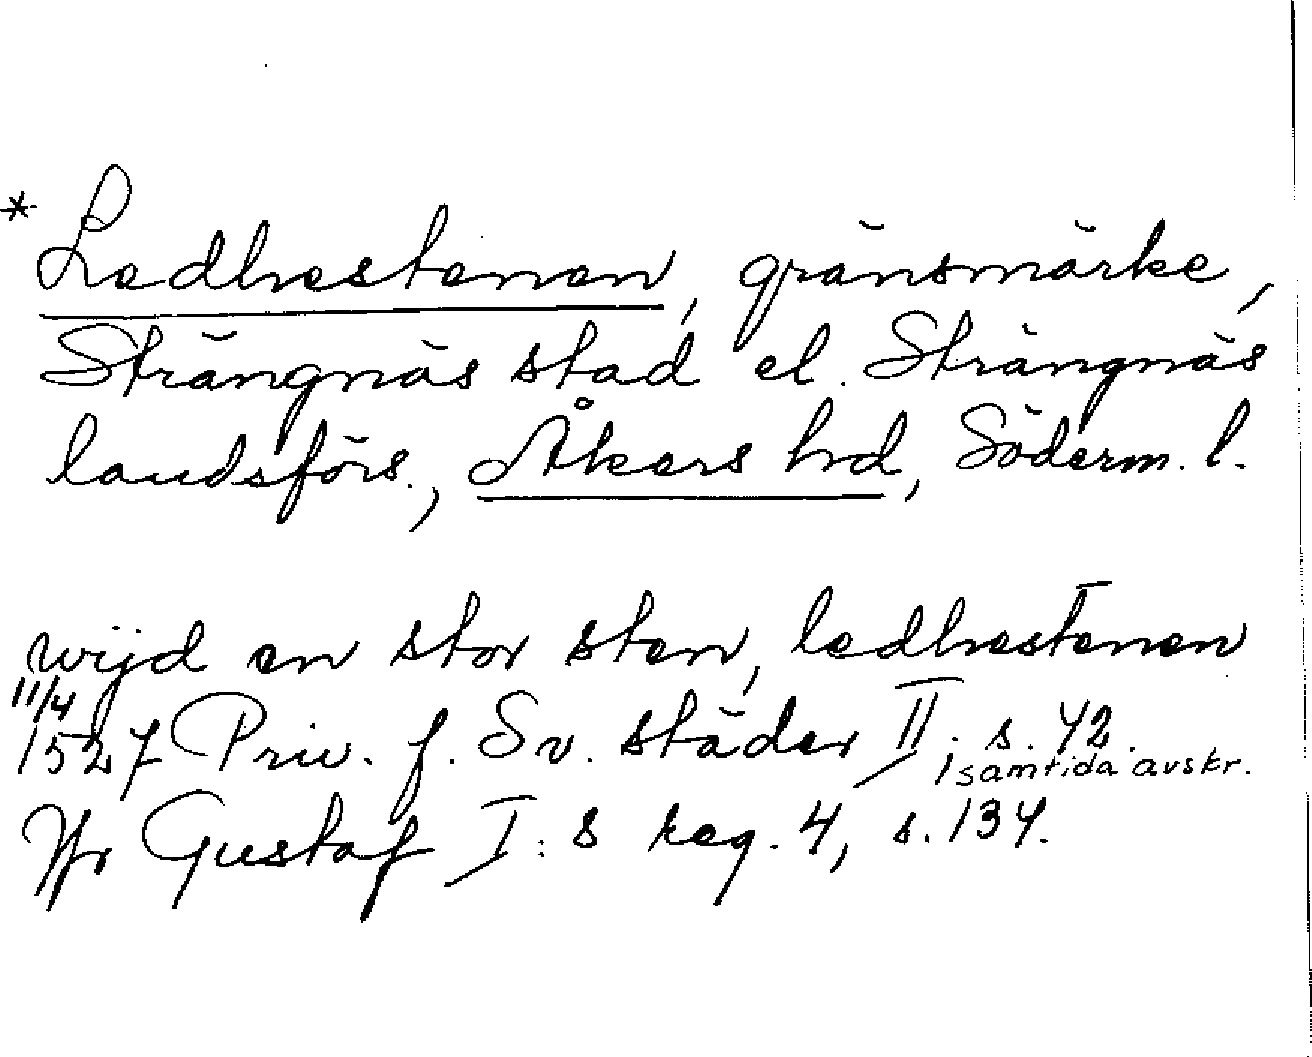 * Ledhestenen, gränsmärke,
Strängnäs stad el. Strängnäs
landsförs., Åkers hd, Söderm. l.
wijd en stor sten, ledhestenen
11/4
1527 Priv. f. Sv. städer II, s. 42.
samtida avskr.
Jfr Gustaf I:s reg. 4, s. 134.